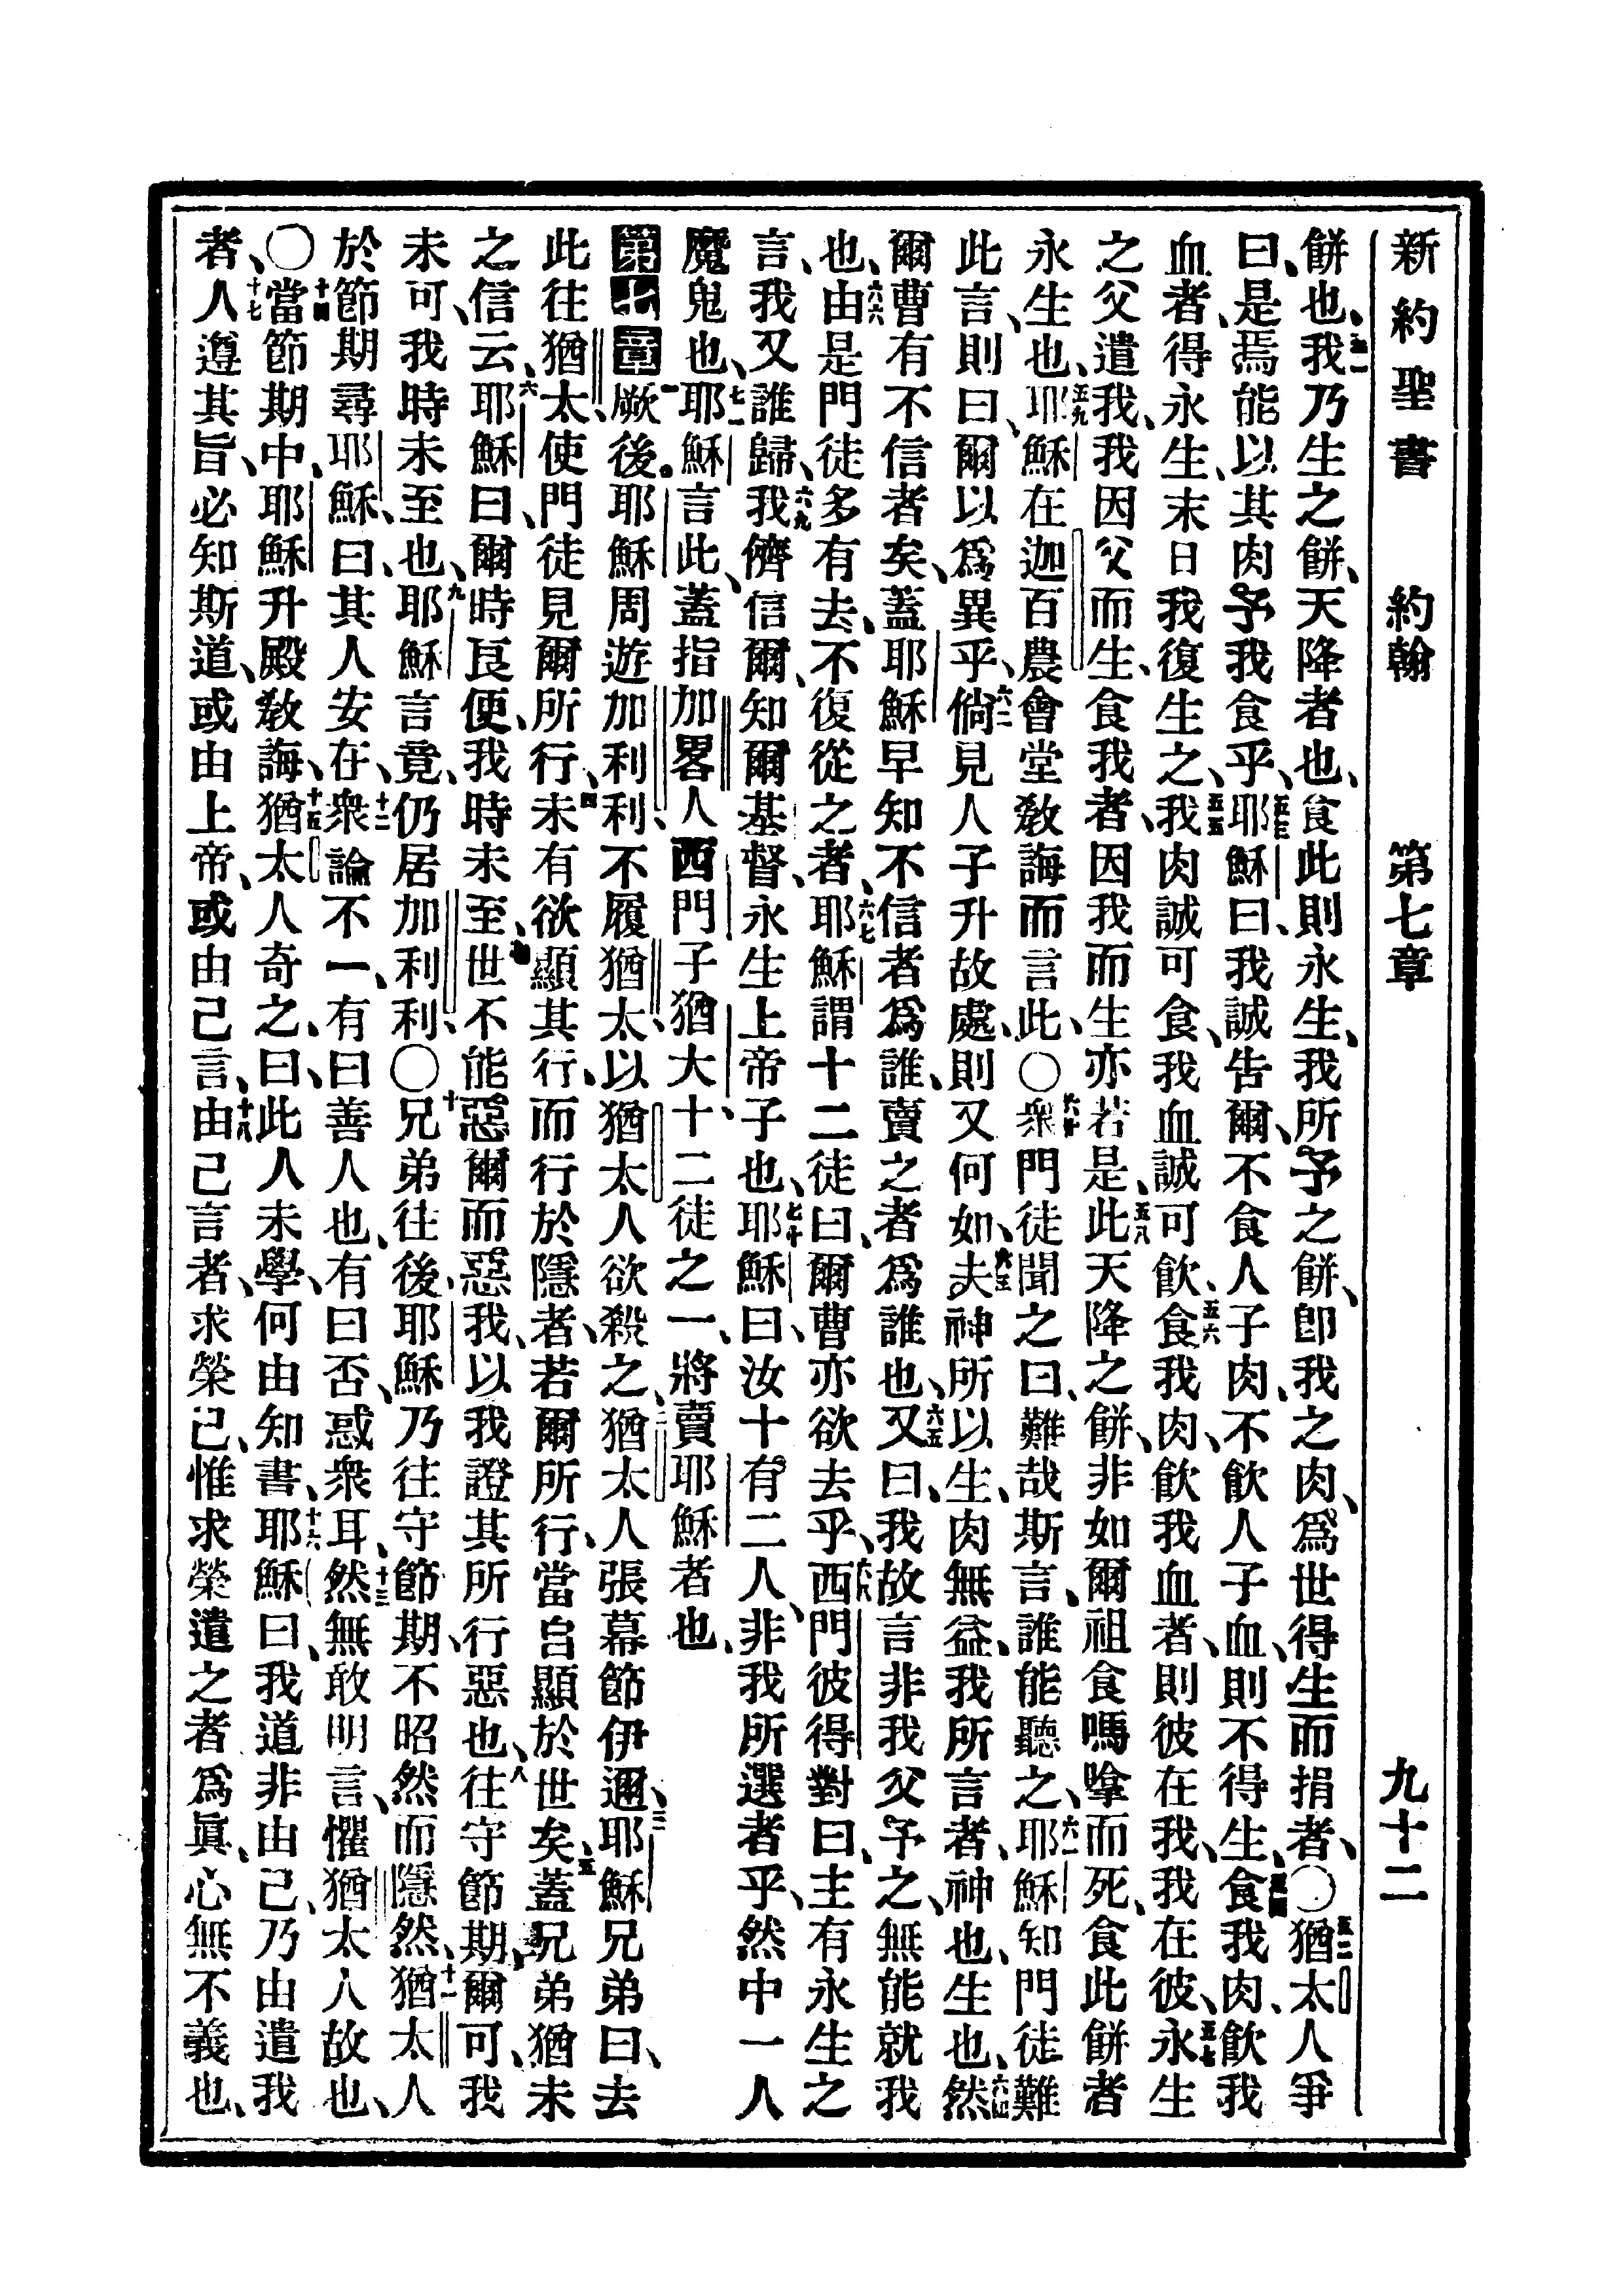 新約聖書 約翰 第七章 九十二
餅也、五一我乃生之餅、天降者也、食此則永生、我所予之餅、卽我之肉、爲世得生而捐者、〇五二猶太人爭
曰、是焉能以其肉予我食乎、五三耶穌曰、我誠告爾、不食人子肉、不飲人子血、則不得生、五四食我肉、飲我
血者、得永生、末日我復生之、五五我肉誠可食、我血誠可飲、五六食我肉、飲我血者、則彼在我、我在彼、五七永生
之父遣我、我因父而生、食我者、因我而生亦若是、五八此天降之餅、非如爾祖食嗎嗱而死、食此餅者
永生也、五九耶穌在迦百農會堂敎誨而言此、〇六十衆門徒聞之曰、難哉斯言、誰能聽之、六一耶穌知門徒難
此言、則曰、爾以爲異乎、六二倘見人子升故處、則又何如、六三夫神所以生、肉無益、我所言者、神也、生也、六四然
爾曹有不信者矣、蓋耶穌早知不信者爲誰、賣之者爲誰也、六五又曰、我故言非我父予之、無能就我
也、六六由是門徒多有去、不復從之者、六七耶穌謂十二徒曰、爾曹亦欲去乎、六八西門彼得對曰、主有永生之
言、我又誰歸、六九我儕信爾、知爾基督、永生上帝子也、七十耶穌曰、汝十有二人、非我所選者乎、然中一人
魔鬼也、七一耶穌言此、蓋指加畧人西門子猶大、十二徒之一、將賣耶穌者也、
第七章 一厥後、耶穌周遊加利利、不履猶太、以猶太人欲殺之、二猶太人張幕節伊邇、三耶穌兄弟曰、去
此往猶太、使門徒見爾所行、四未有欲顯其行、而行於隱者、若爾所行、當自顯於世矣、五蓋兄弟猶未
之信云、六耶穌曰、爾時良便、我時未至、七世不能惡爾而惡我、以我證其所行惡也、八往守節期、爾可、我
未可、我時未至也、九耶穌言竟、仍居加利利、〇十兄弟往後、耶穌乃往守節期、不昭然而隱然、十一猶太人
於節期尋耶穌、曰、其人安在、十二衆論不一、有曰善人也、有曰否、惑衆耳、十三然無敢明言、懼猶太人故也、
〇十四當節期中、耶穌升殿敎誨、十五猶太人奇之、曰、此人未學、何由知書、十六耶穌曰、我道非由己、乃由遣我
者、十七人遵其旨、必知斯道、或由上帝、或由己言、十八由己言者、求榮己、惟求榮遣之者爲眞、心無不義也、